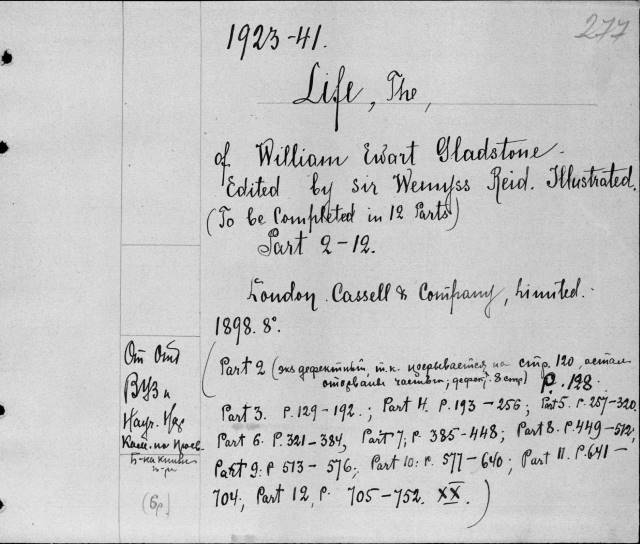 277
1923-41.
Life, The,
of William Ewart Gladstone.
Edited by Sir Wemyss Reid. Illustrated.
(To be Completed in 12 Parts)
Part 2-12.
London. Cassell & Company, Limited.
1898. 8°.
(Part 2 (экз дефектный, т.к. обрывается на стр. 120, остал
оторваны частью; дефект. 8 стр) p. 128.
Part 3. P. 129-192.; Part 4. P. 193-256; Part 5. P. 257-320,
Part 6. P. 321-384, Part 7; P. 385-448; Part 8. P. 449-512;
Part 9: P 513-576; Part 10: P. 577-640; Part 11. P. 641-
704; Part 12, P. 705-752. XX.)
От Отд
ВУЗ и
Науч. Пер
Кам. по Просв.
Б-ка книг
(6р.)